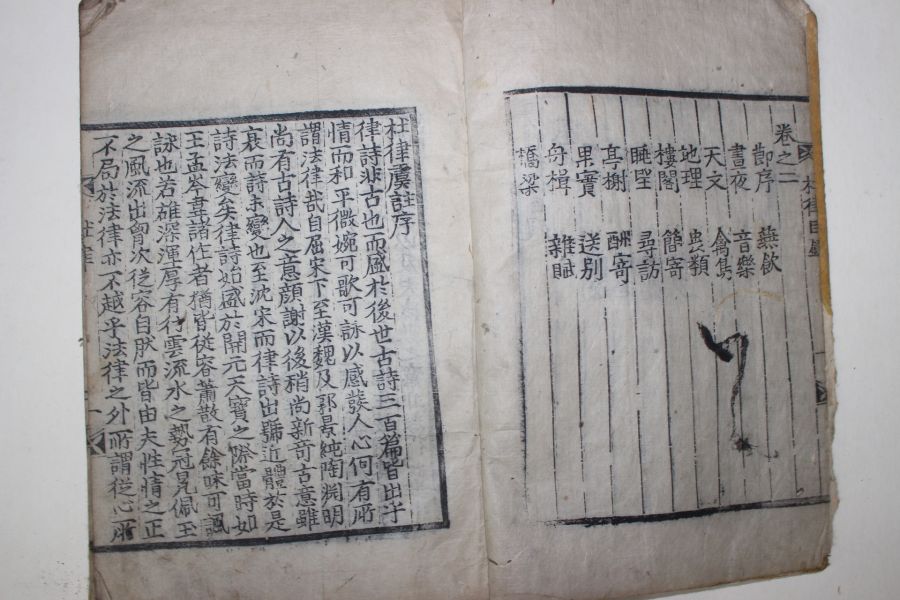 卷之二
節序 燕飲
晝夜 音樂
天文 禽獸
地理 虫類
樓閣 簡寄
眺望 尋訪
亭榭 酬寄
果實 送別
舟楫 雜賦
橋梁
杜律目錄
杜律虞註序
律詩非古也而盛於後世古詩三百篇皆出乎
情而和平微婉可歌可詠以感發人心何有所
謂法律哉自屈宋下至漢魏及郭景純陶淵明
尚有古詩人之意顔謝以後稍尚新奇古意雖
衰而詩未變也至沈宋而律詩出號近體於是
詩法變矣律詩始盛於開元天寶之際當時如
王孟岑韋諸作者猶皆從容蕭散有餘味可諷
詠也若雄深渾厚有行雲流水之勢冠冕佩玉
之風流出胷次從容自肰而皆由夫性情之正
不局於法律亦不越乎法律之外所謂從心所
杜律